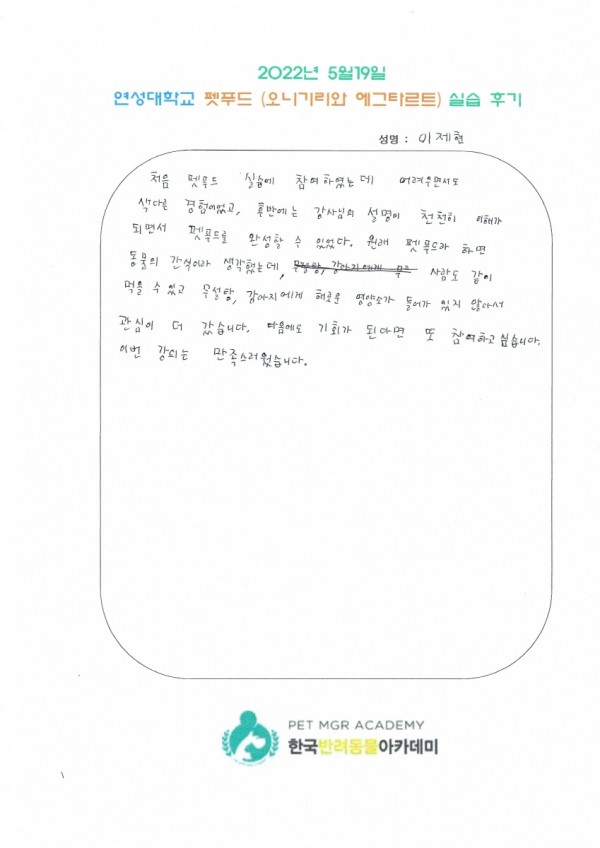 2022년 5월19일
연성대학교 펫푸드 (오니기리와 에그타르트) 실습 후기
성명 : 이제현
처음 펫푸드 실습에 참여하였는데 어려우면서도
색다른 경험이었고, 후반에는 강사님의 설명이 천천히 이해가
되면서 펫푸드를 완성할 수 있었다. 원래 펫푸드라 하면
동물의 간식이라 생각했는데, 사람도 같이
먹을 수 있고 무설탕, 강아지에게 해로운 영양소가 들어가 있지 않아서
관심이 더 갔습니다. 다음에도 기회가 된다면 또 참여하고 싶습니다.
이번 강의는 만족스러웠습니다.
PET MGR ACADEMY
한국반려동물아카데미